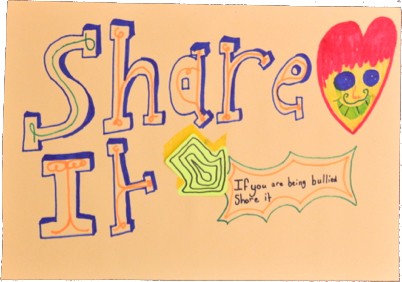 Share
It
If you are being bullied
Share it